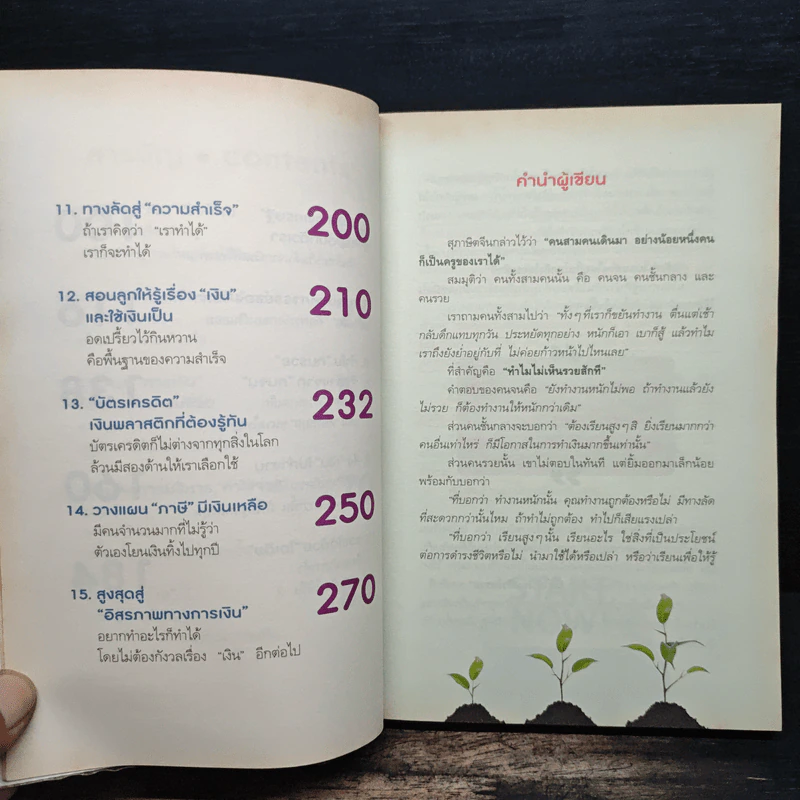 11. ทางลัดสู่ “ความสำเร็จ”
200
ถ้าเราคิดว่า “เราทำได้”
เราก็จะทำได้
12. สอนลูกให้รู้เรื่อง “เงิน”
210
และใช้เงินเป็น
อดเปรี้ยวไว้กินหวาน
คือพื้นฐานของความสำเร็จ
13. “บัตรเครดิต”
232
เงินพลาสติกที่ต้องรู้ทัน
บัตรเครดิตก็ไม่ต่างจากทุกสิ่งในโลก
ล้วนมีสองด้านให้เราเลือกใช้
14. วางแผน “ภาษี” มีเงินเหลือ
250
มีคนจำนวนมากที่ไม่รู้ว่า
ตัวเองโยนเงินทิ้งไปทุกปี
15. สูงสุดสู่
270
“อิสรภาพทางการเงิน”
อยากทำอะไรก็ทำได้
โดยไม่ต้องกังวลเรื่อง “เงิน” อีกต่อไป
คำนำผู้เขียน
สุภาษิตจีนกล่าวไว้ว่า “คนสามคนเดินมา อย่างน้อยหนึ่งคน
ก็เป็นครูของเราได้”
สมมุติว่า คนทั้งสามคนนั้น คือ คนจน คนชั้นกลาง และ
คนรวย
เราถามคนทั้งสามไปว่า “ทั้งๆ ที่เราก็ขยันทำงาน ตื่นแต่เช้า
กลับดึกแทบทุกวัน ประหยัดทุกอย่าง หนักก็เอา เบาก็สู้ แล้วทำไม
เราถึงยังย่ำอยู่กับที่ ไม่ค่อยก้าวหน้าไปไหนเลย”
ที่สำคัญคือ “ทำไมไม่เห็นรวยสักที”
คำตอบของคนจนคือ “ยังทำงานหนักไม่พอ ถ้าทำงานแล้วยัง
ไม่รวย ก็ต้องทำงานให้หนักกว่าเดิม”
ส่วนคนชั้นกลางจะบอกว่า “ต้องเรียนสูงๆ สิ ยิ่งเรียนมากกว่า
คนอื่นเท่าไหร่ ก็มีโอกาสในการทำเงินมากขึ้นเท่านั้น”
ส่วนคนรวยนั้น เขาไม่ตอบในทันที แต่ยิ้มออกมาเล็กน้อย
พร้อมกับบอกว่า
“ที่บอกว่า ทำงานหนักนั้น คุณทำงานถูกต้องหรือไม่ มีทางลัด
ที่สะดวกกว่านั้นไหม ถ้าทำไม่ถูกต้อง ทำไปก็เสียแรงเปล่า
“ที่บอกว่า เรียนสูงๆ นั้น เรียนอะไร ใช่สิ่งที่เป็นประโยชน์
ต่อการดำรงชีวิตหรือไม่ นำมาใช้ได้หรือเปล่า หรือว่าเรียนเพื่อให้รู้